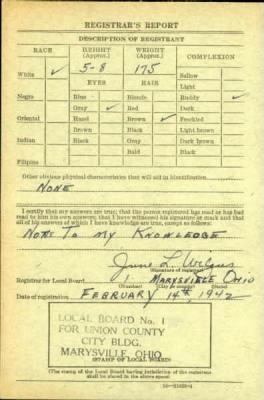 REGISTRAR'S REPORT
DESCRIPTION OF REGISTRANT
RACE HEIGHT (Approx.) WEIGHT (Approx.) COMPLEXION
White ✓ 5-8 175 Sallow
EYES HAIR Light
Negro Blue Blonde Ruddy ✓
Gray ✓ Red Dark
Oriental Hazel Brown ✓ Freckled
Brown Black Light brown
Indian Black Gray Dark brown
Bald Black
Filipino
Other obvious physical characteristics that will aid in identification
NONE
I certify that my answers are true; that the person registered has read or has had
read to him his own answers; that I have witnessed his signature or mark and that
all of his answers of which I have knowledge are true, except as follows:
NONE TO MY KNOWLEDGE
June L.
(Signature of registrar)
Registrar for Local Board 1 MARYSVILLE OHIO
(City or county) (State)
Date of registration FEBRUARY 14th, 1942
LOCAL BOARD No. 1
FOR UNION COUNTY
CITY BLDG.
MARYSVILLE, OHIO
(STAMP OF LOCAL BOARD)
(The stamp of the Local Board having jurisdiction of the registrant
shall be placed in the above space)